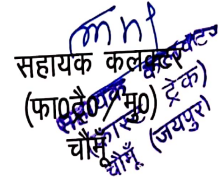 सहायक कलक्टर
(फा0ट्रै0 / मु0)
चौमूँ
सहायक कलक्टर
(फास्ट ट्रेक)
चौमूँ (जयपुर)